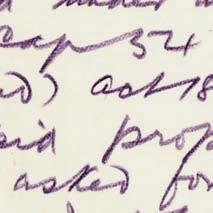 under
Cap 54
ed) Act 18
aid prop
asked for